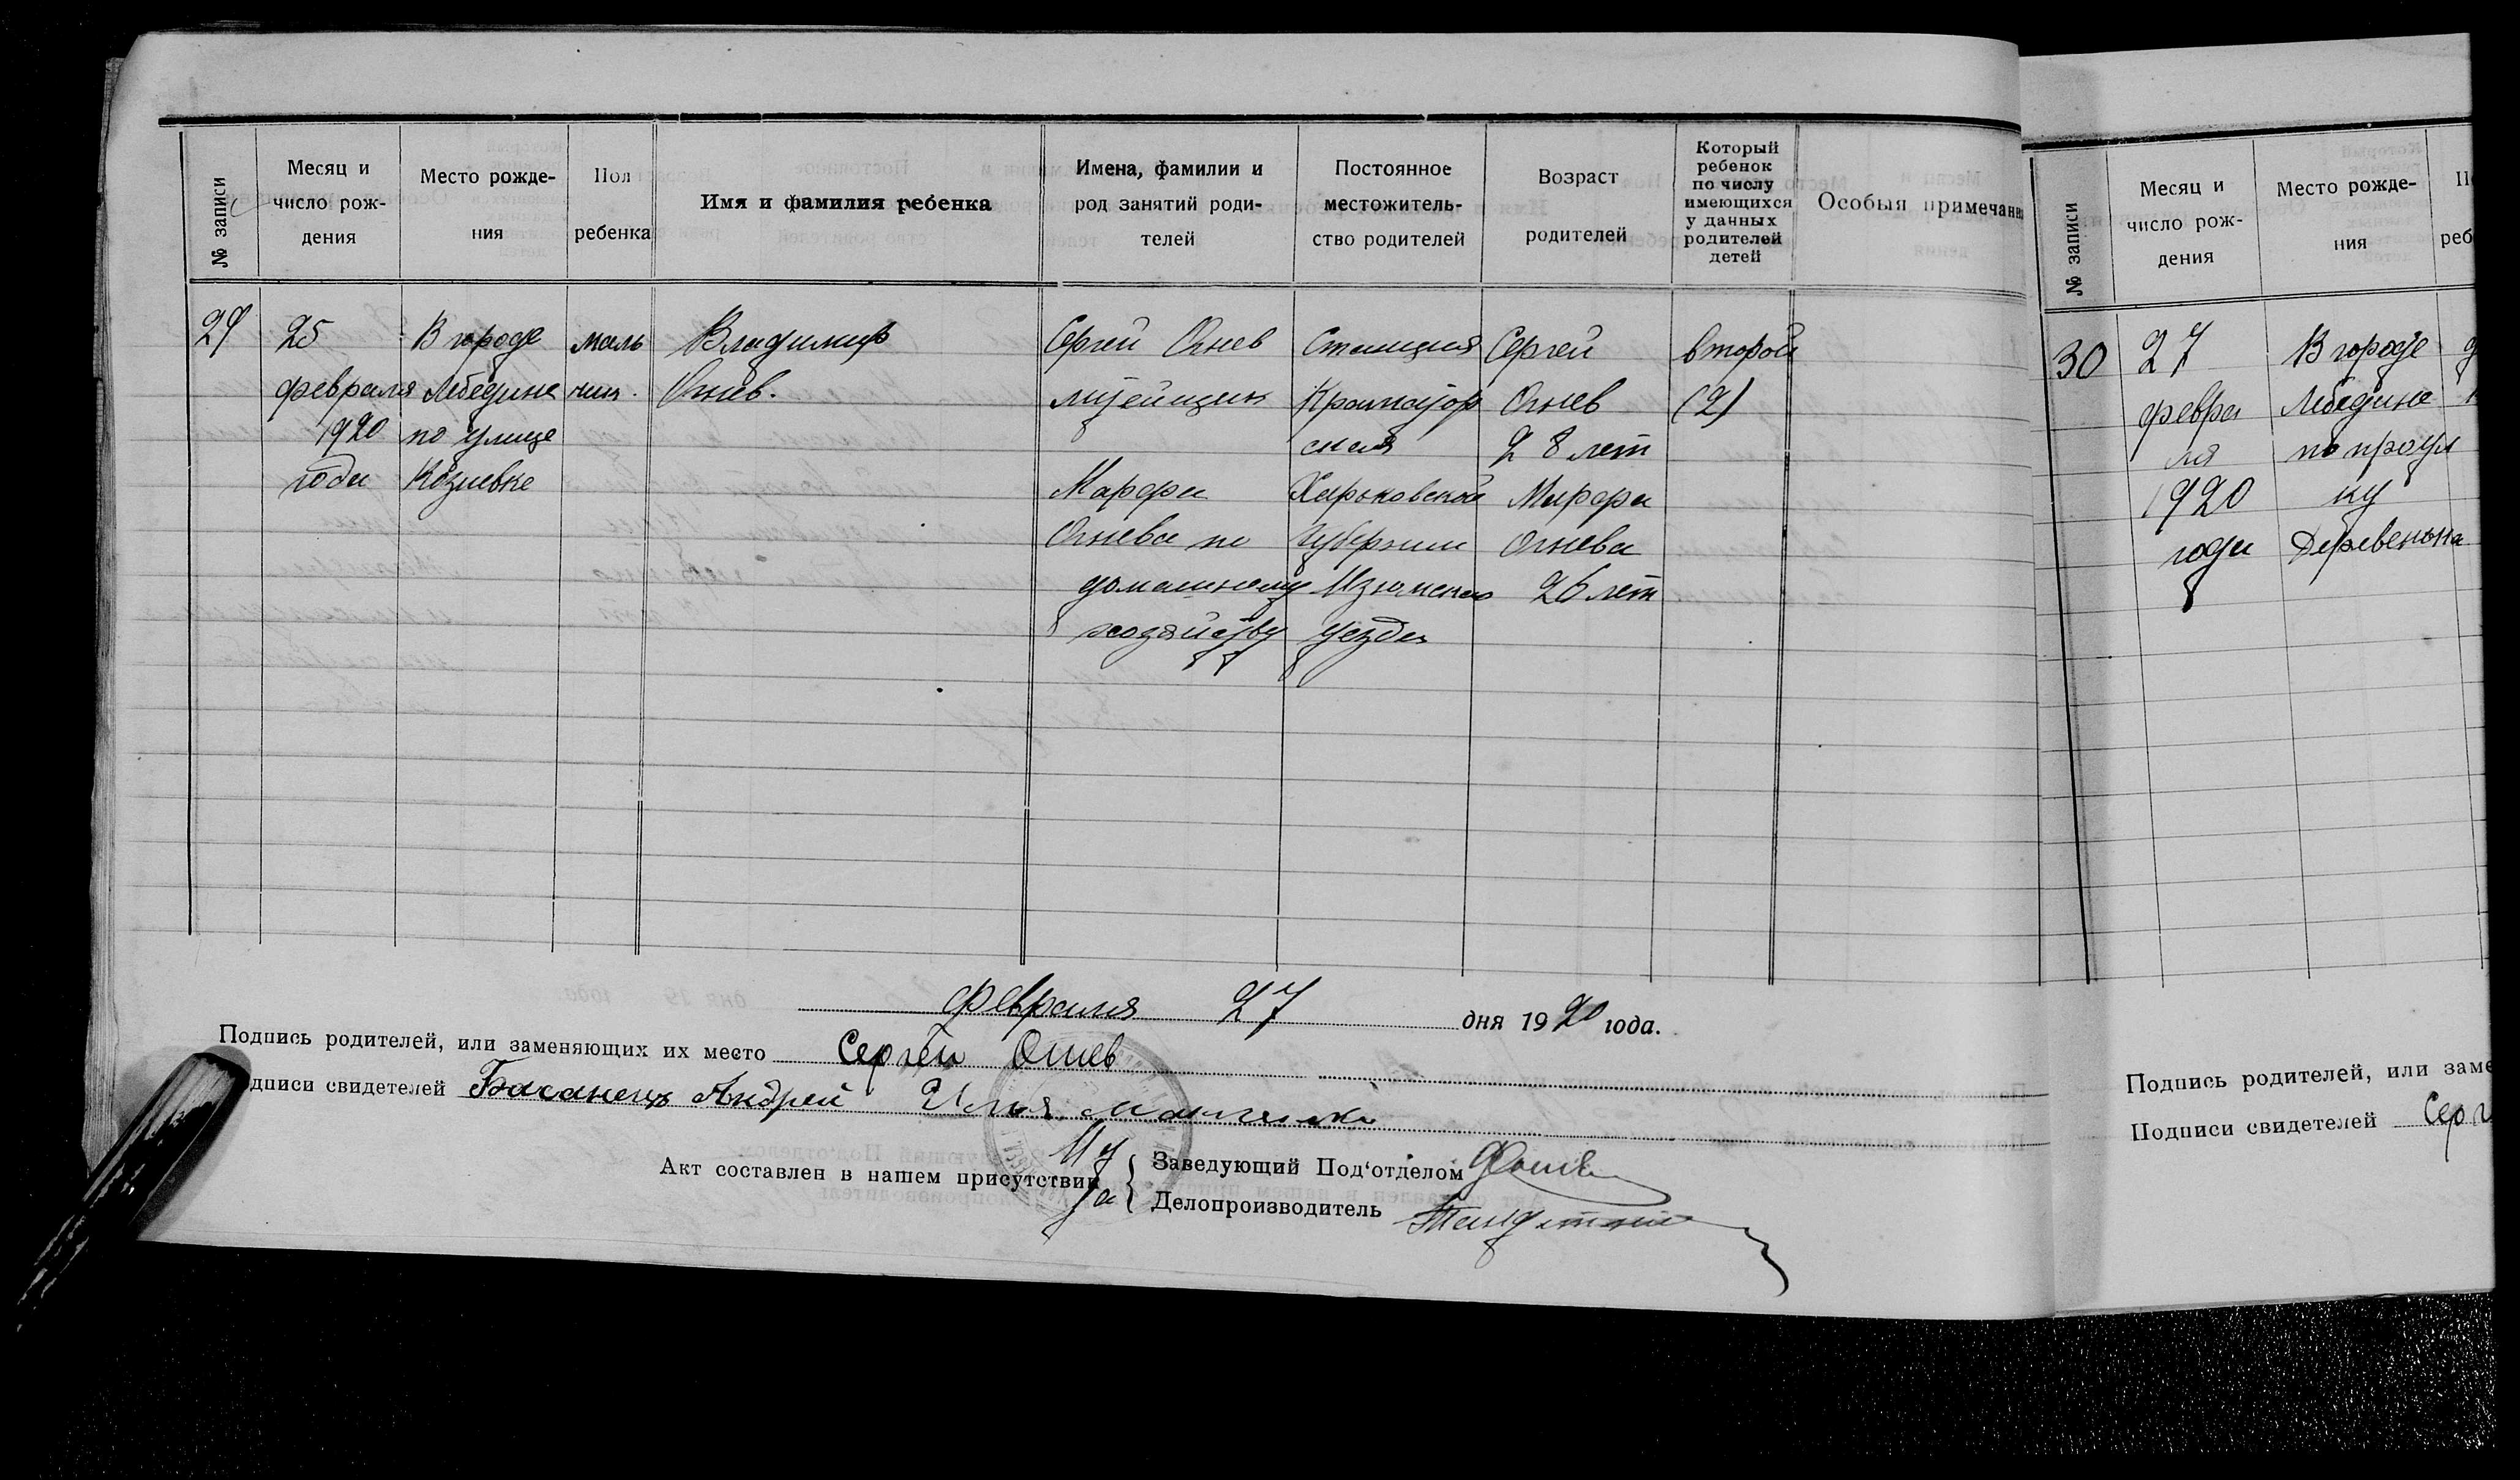 № записи
Месяц и
число рож-
дения
Место рожде-
ния
Пол
ребенка
Имя и фамилия ребенка
Имена, фамилии и
род занятий роди-
телей
Постоянное
местожитель-
ство родителей
Возраст
родителей
Который
ребенок
по числу
имеющихся
у данных
родителей
детей
Особыя примечани
29
25
февраля
1920
года
В городе
Лебедине
по улице
Козиевке
маль
чик.
Владимир
Огнев.
Сергей Огнев
литейщик
Марфа
Огнева по
домашнему
хозяйству
Станция
Краматор
ская
Харьковской
губернии
Изюмского
уезда
Сергей
Огнев
28 лет
Марфа
Огнева
26 лет
второй
(2)
февраля 27 дня 1920 года.
Подпись родителей, или заменяющих их место Сергей Огнев
дписи свидетелей Басанец Андрей Илья
Акт составлен в нашем присутствии
Заведующий Под'отделом
Делопроизводитель
№ записи
Месяц и
число рож-
дения
Место рожде-
ния
реб
30
27
февра
ля
1920
года
В городе
Лебедине
по проул
ку
Деревенька
Подпись родителей, или заме
Подписи свидетелей Серг